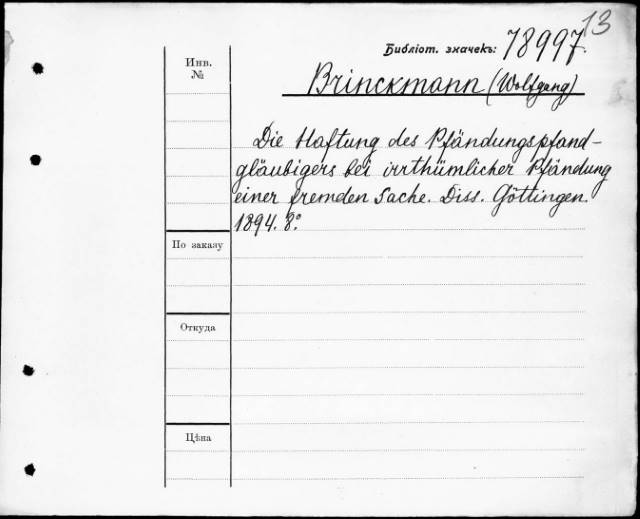 13
Библіот. значекъ: 78997.
Инв.
№
Brinckmann (Wolfgang)
Die Haftung des Pfändungspfand-
gläubigers bei irrthümlicher Pfändung
einer fremden Sache. Diss. Göttingen.
1894. 8.°
По заказу
Откуда
Цѣна